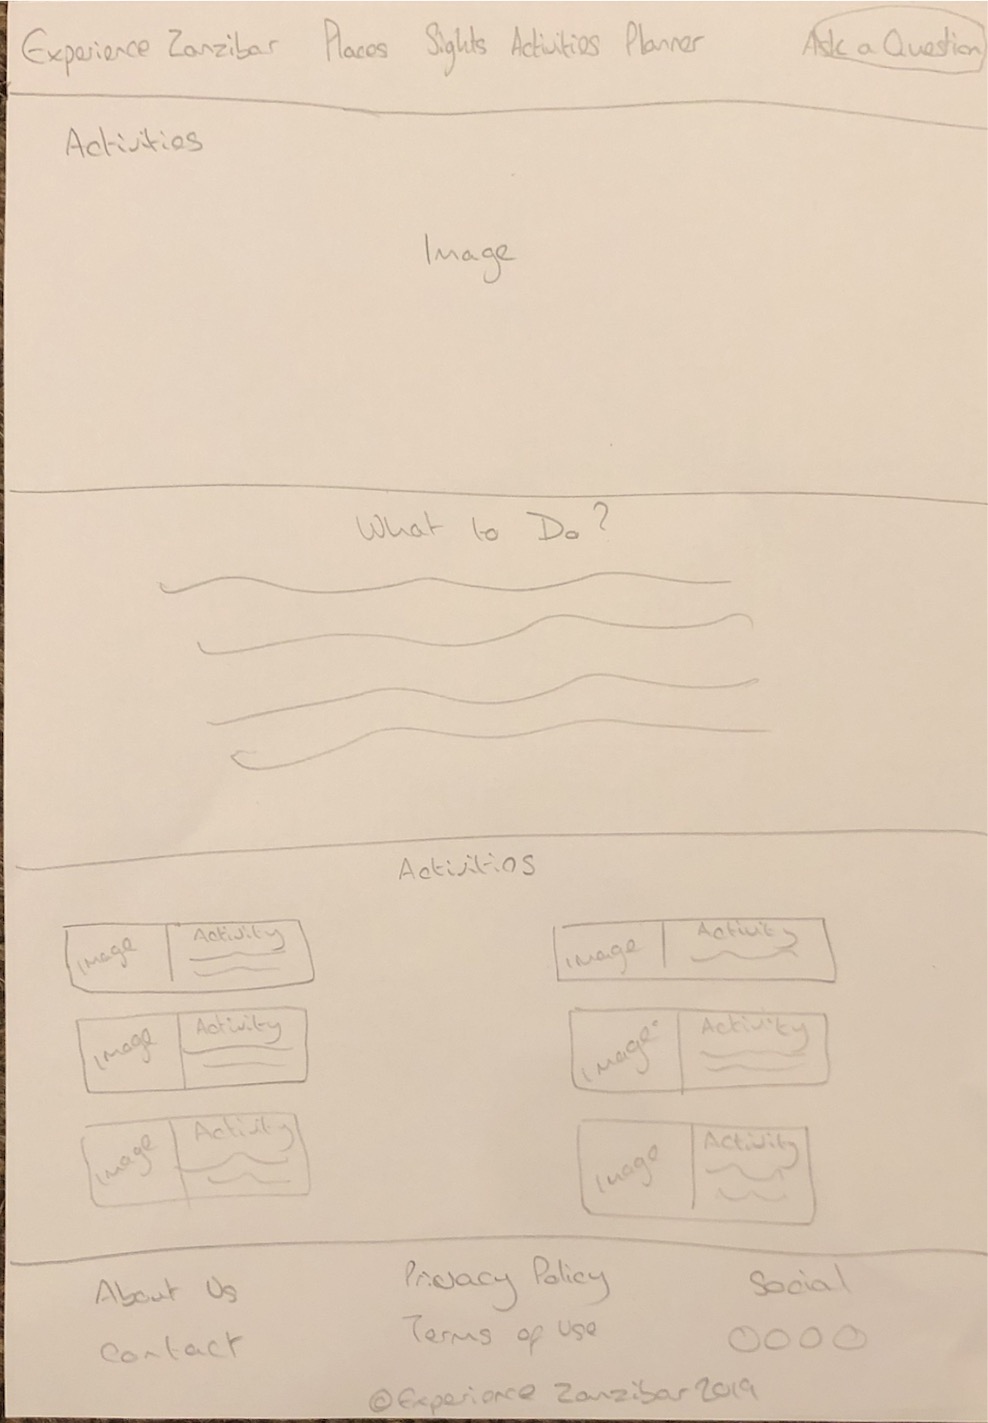 Experience Zanzibar Places Sights Activities Planner Ask a Question
Activities
Image
What to Do?
Activities
Image Activity
Image Activity
Image Activity
Image Activity
Image Activity
Image Activity
About Us Privacy Policy Social
Contact Terms of Use
©Experience Zanzibar 2019